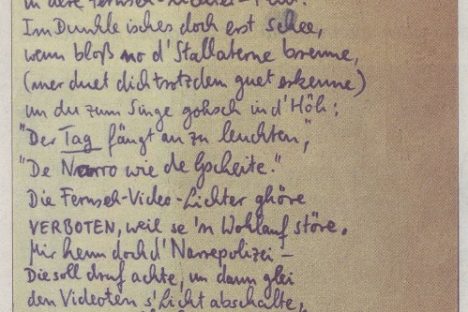 in dere Fernseh-Lichter-Flut!
Im Dunkle isches doch erst schee,
wenn bloß no d'Stallaterne brenne,
(mer duet dich trotzdem guet erkenne)
un du zum Singe gohsch in d'Höh:
"Der Tag fängt an zu leuchten,"
"De Narro wie de Gscheite."
Die Fernseh-Video-Lichter ghöre
VERBOTEN, weil se 'n Wohlauf störe.
Mir henn doch d'Narrepolizei –
Die soll druf achte, un dann glei
den Videoten s'Licht abschalte,